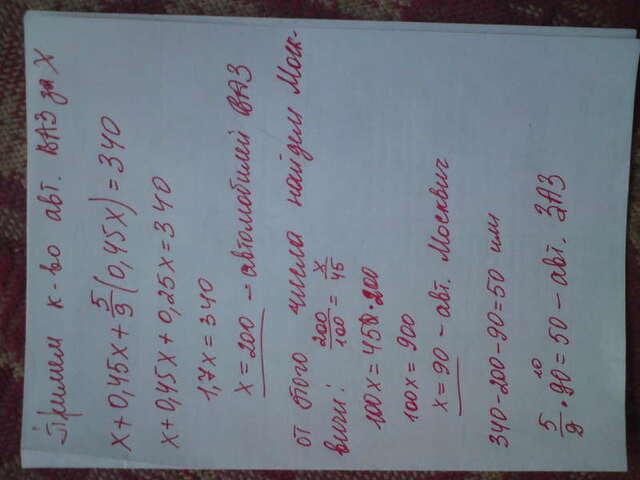 Примем к-во авт. ВАЗ за X
x+0,45x+5/9(0,45x)=340
x+0,45x+0,25x=340
1,7x=340
x=200 – автомобилей ВАЗ
от этого числа найдем Моск-
вичи: 200/100=x/45
100x=450·200
100x=900
x=90 – авт. Москвич
340-200-90=50 или
5/9·90=50 – авт. ЗАЗ
10